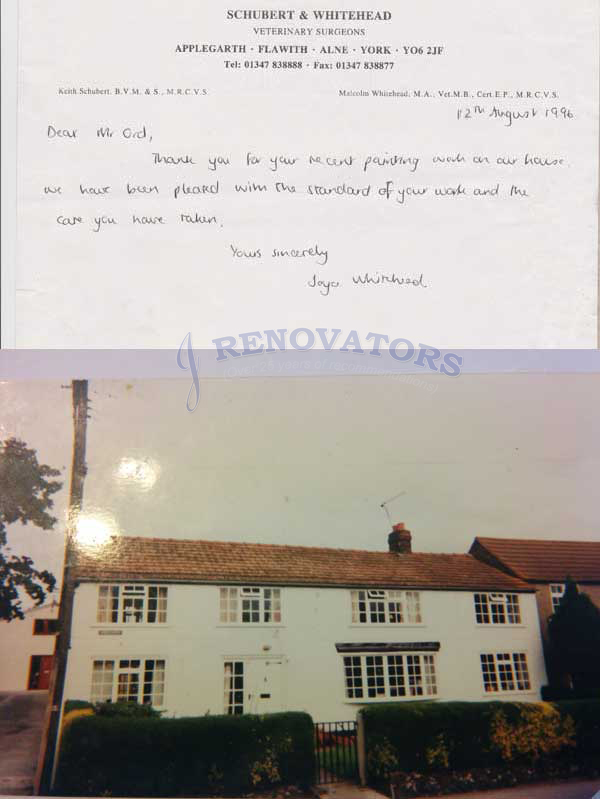 SCHUBERT & WHITEHEAD
VETERINARY SURGEONS
APPLEGARTH · FLAWITH · ALNE · YORK · YO6 2JF
Tel: 01347 838888 · Fax: 01347 838877
Keith Schubert, B.V.M. & S., M.R.C.V.S.
Malcolm Whitehead, M.A., Vet.M.B., Cert.E.P., M.R.C.V.S.
12th August 1996
Dear Mr Ord,
Thank you for your recent painting work on our house.
We have been pleased with the standard of your work and the
care you have taken.
Yours sincerely
Whitehead
J RENOVATORS